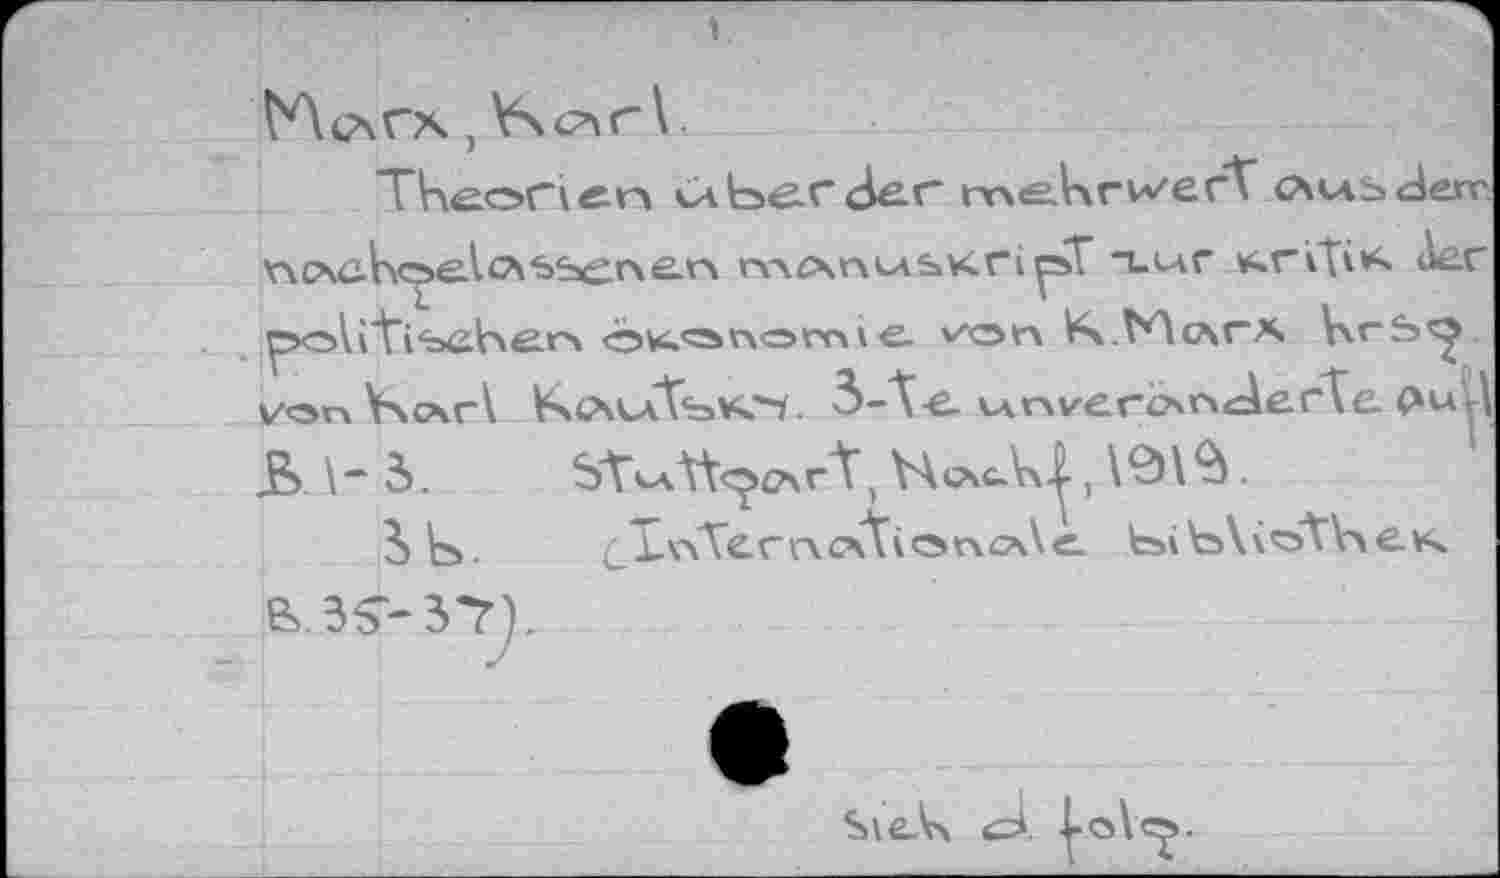 1
Marx, Karl.
Theorien über der mehrwert aus dem
nachgelassenen manuskript zur kritik der
politischen ökonomie von K. Marx hrsg
von Karl Kautsky. 3-te unveränderte aufl
B. 1-3. Stuttgart, Nachf, 1919.
3 b. (Internationale bibliothek
B. 35-37).
Sieh d. folg.